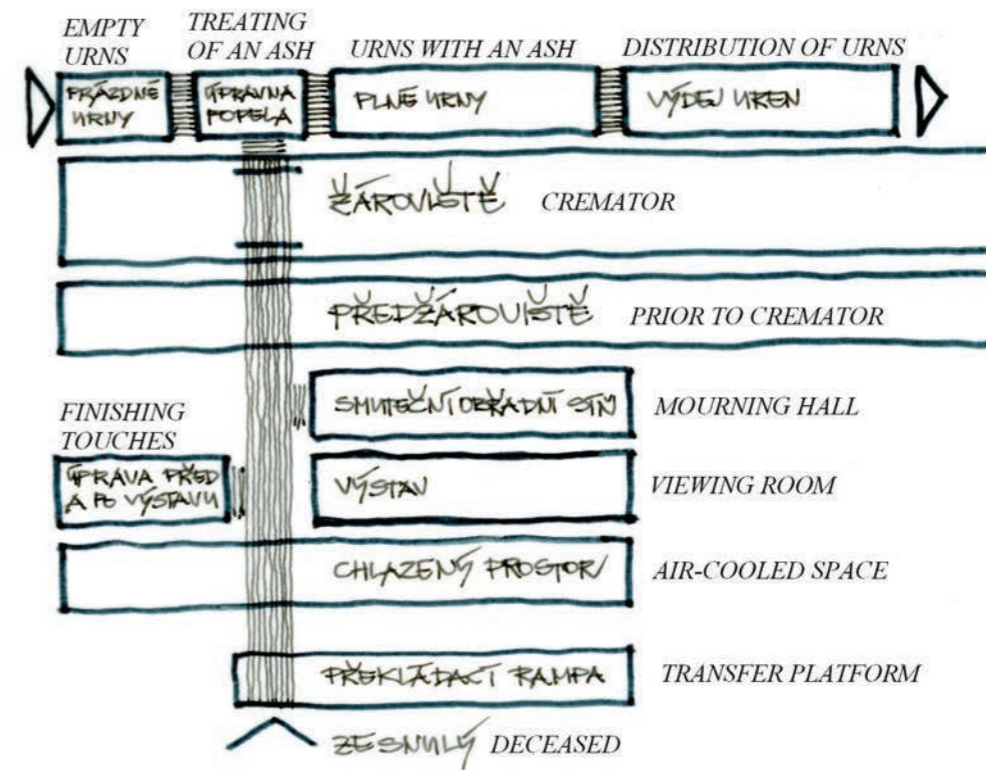 EMPTY
URNS
TREATING
OF AN ASH
URNS WITH AN ASH
DISTRIBUTION OF URNS
PRÁZDNÉ
URNY
ÚPRAVNA
POPELA
PLNÉ URNY
VÝDEJ UREN
ŽÁROVIŠTĚ CREMATOR
PŘEDŽÁROVIŠTĚ PRIOR TO CREMATOR
SMUTEČNÍ OBŘADNÍ SÍŇ MOURNING HALL
FINISHING
TOUCHES
ÚPRAVA PŘED
A PO VÝSTAVU
VÝSTAV VIEWING ROOM
CHLAZENÝ PROSTOR AIR-COOLED SPACE
PŘEKLÁDACÍ RAMPA TRANSFER PLATFORM
ZESNULÝ DECEASED